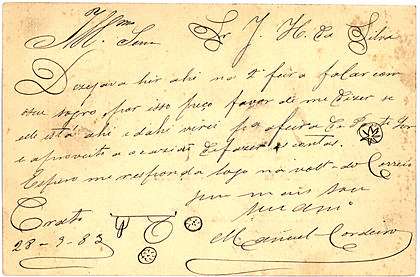 Illmo
Sr. J. H. da Silva
Dezejava hir ahi na 2ª feira falar com
seu sogro, por isso peço favor de me dizer se
elle está ahi e dahi virei pa a feira
e aproveito a ocazião
Espero me responda logo na volta do Correio
sem mais sou
seu amo
Crato
28-9-82
Manuel Cordeiro